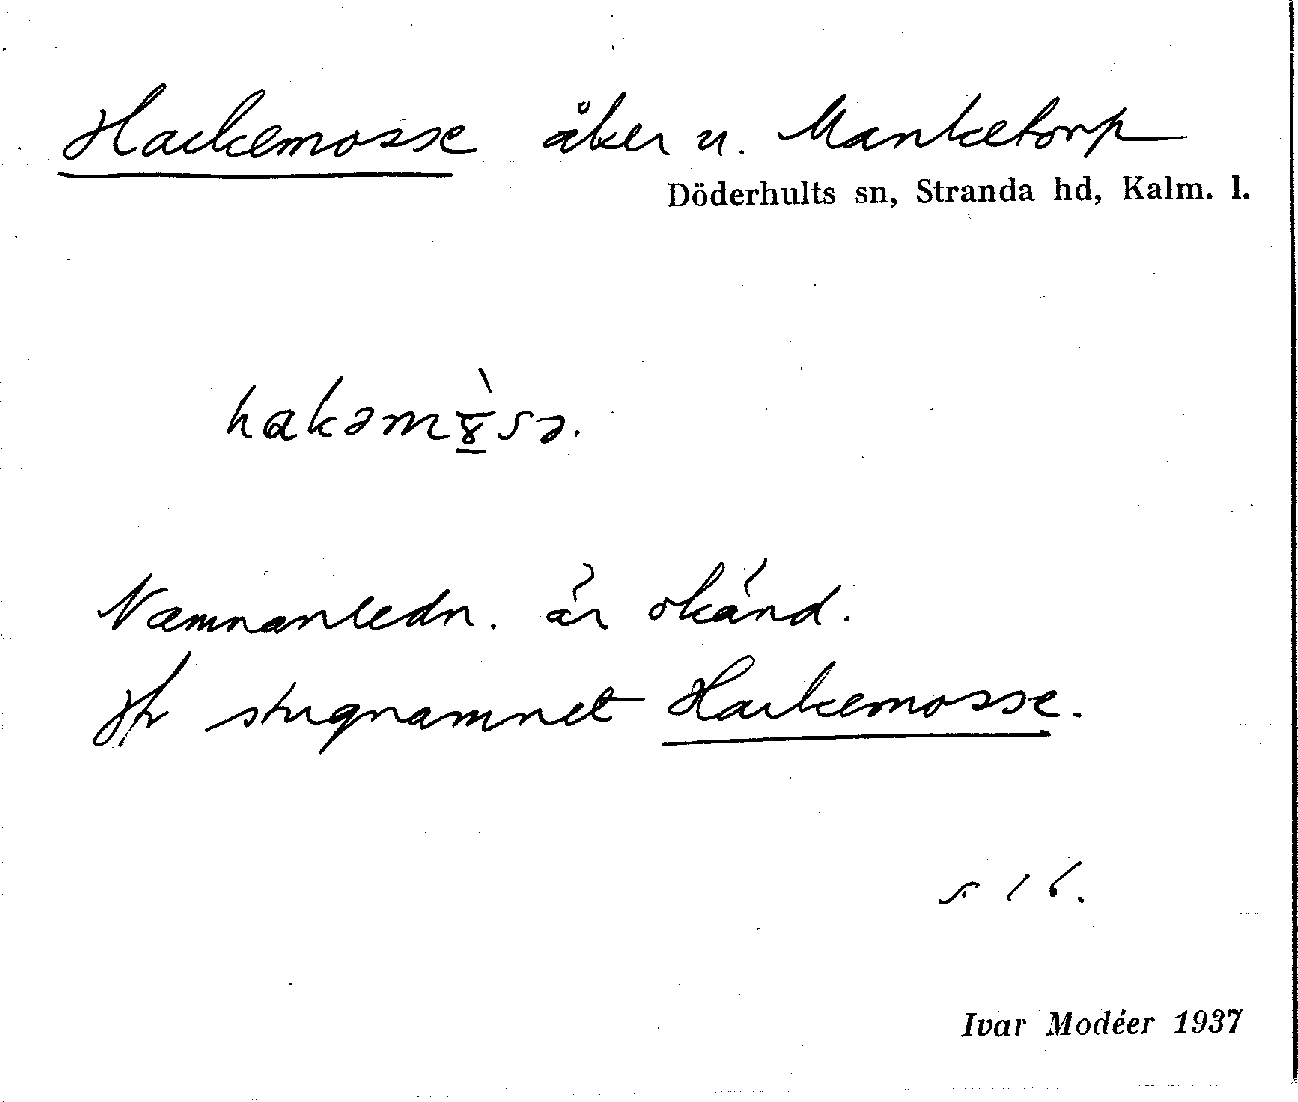 Hackemosse åker u. Manketorp
Döderhults sn, Stranda hd, Kalm. l.
hakəmɤ̀sə.
Namnanledn. är okänd.
Jfr stugnamnet Hackemosse.
s 16.
Ivar Modéer 1937